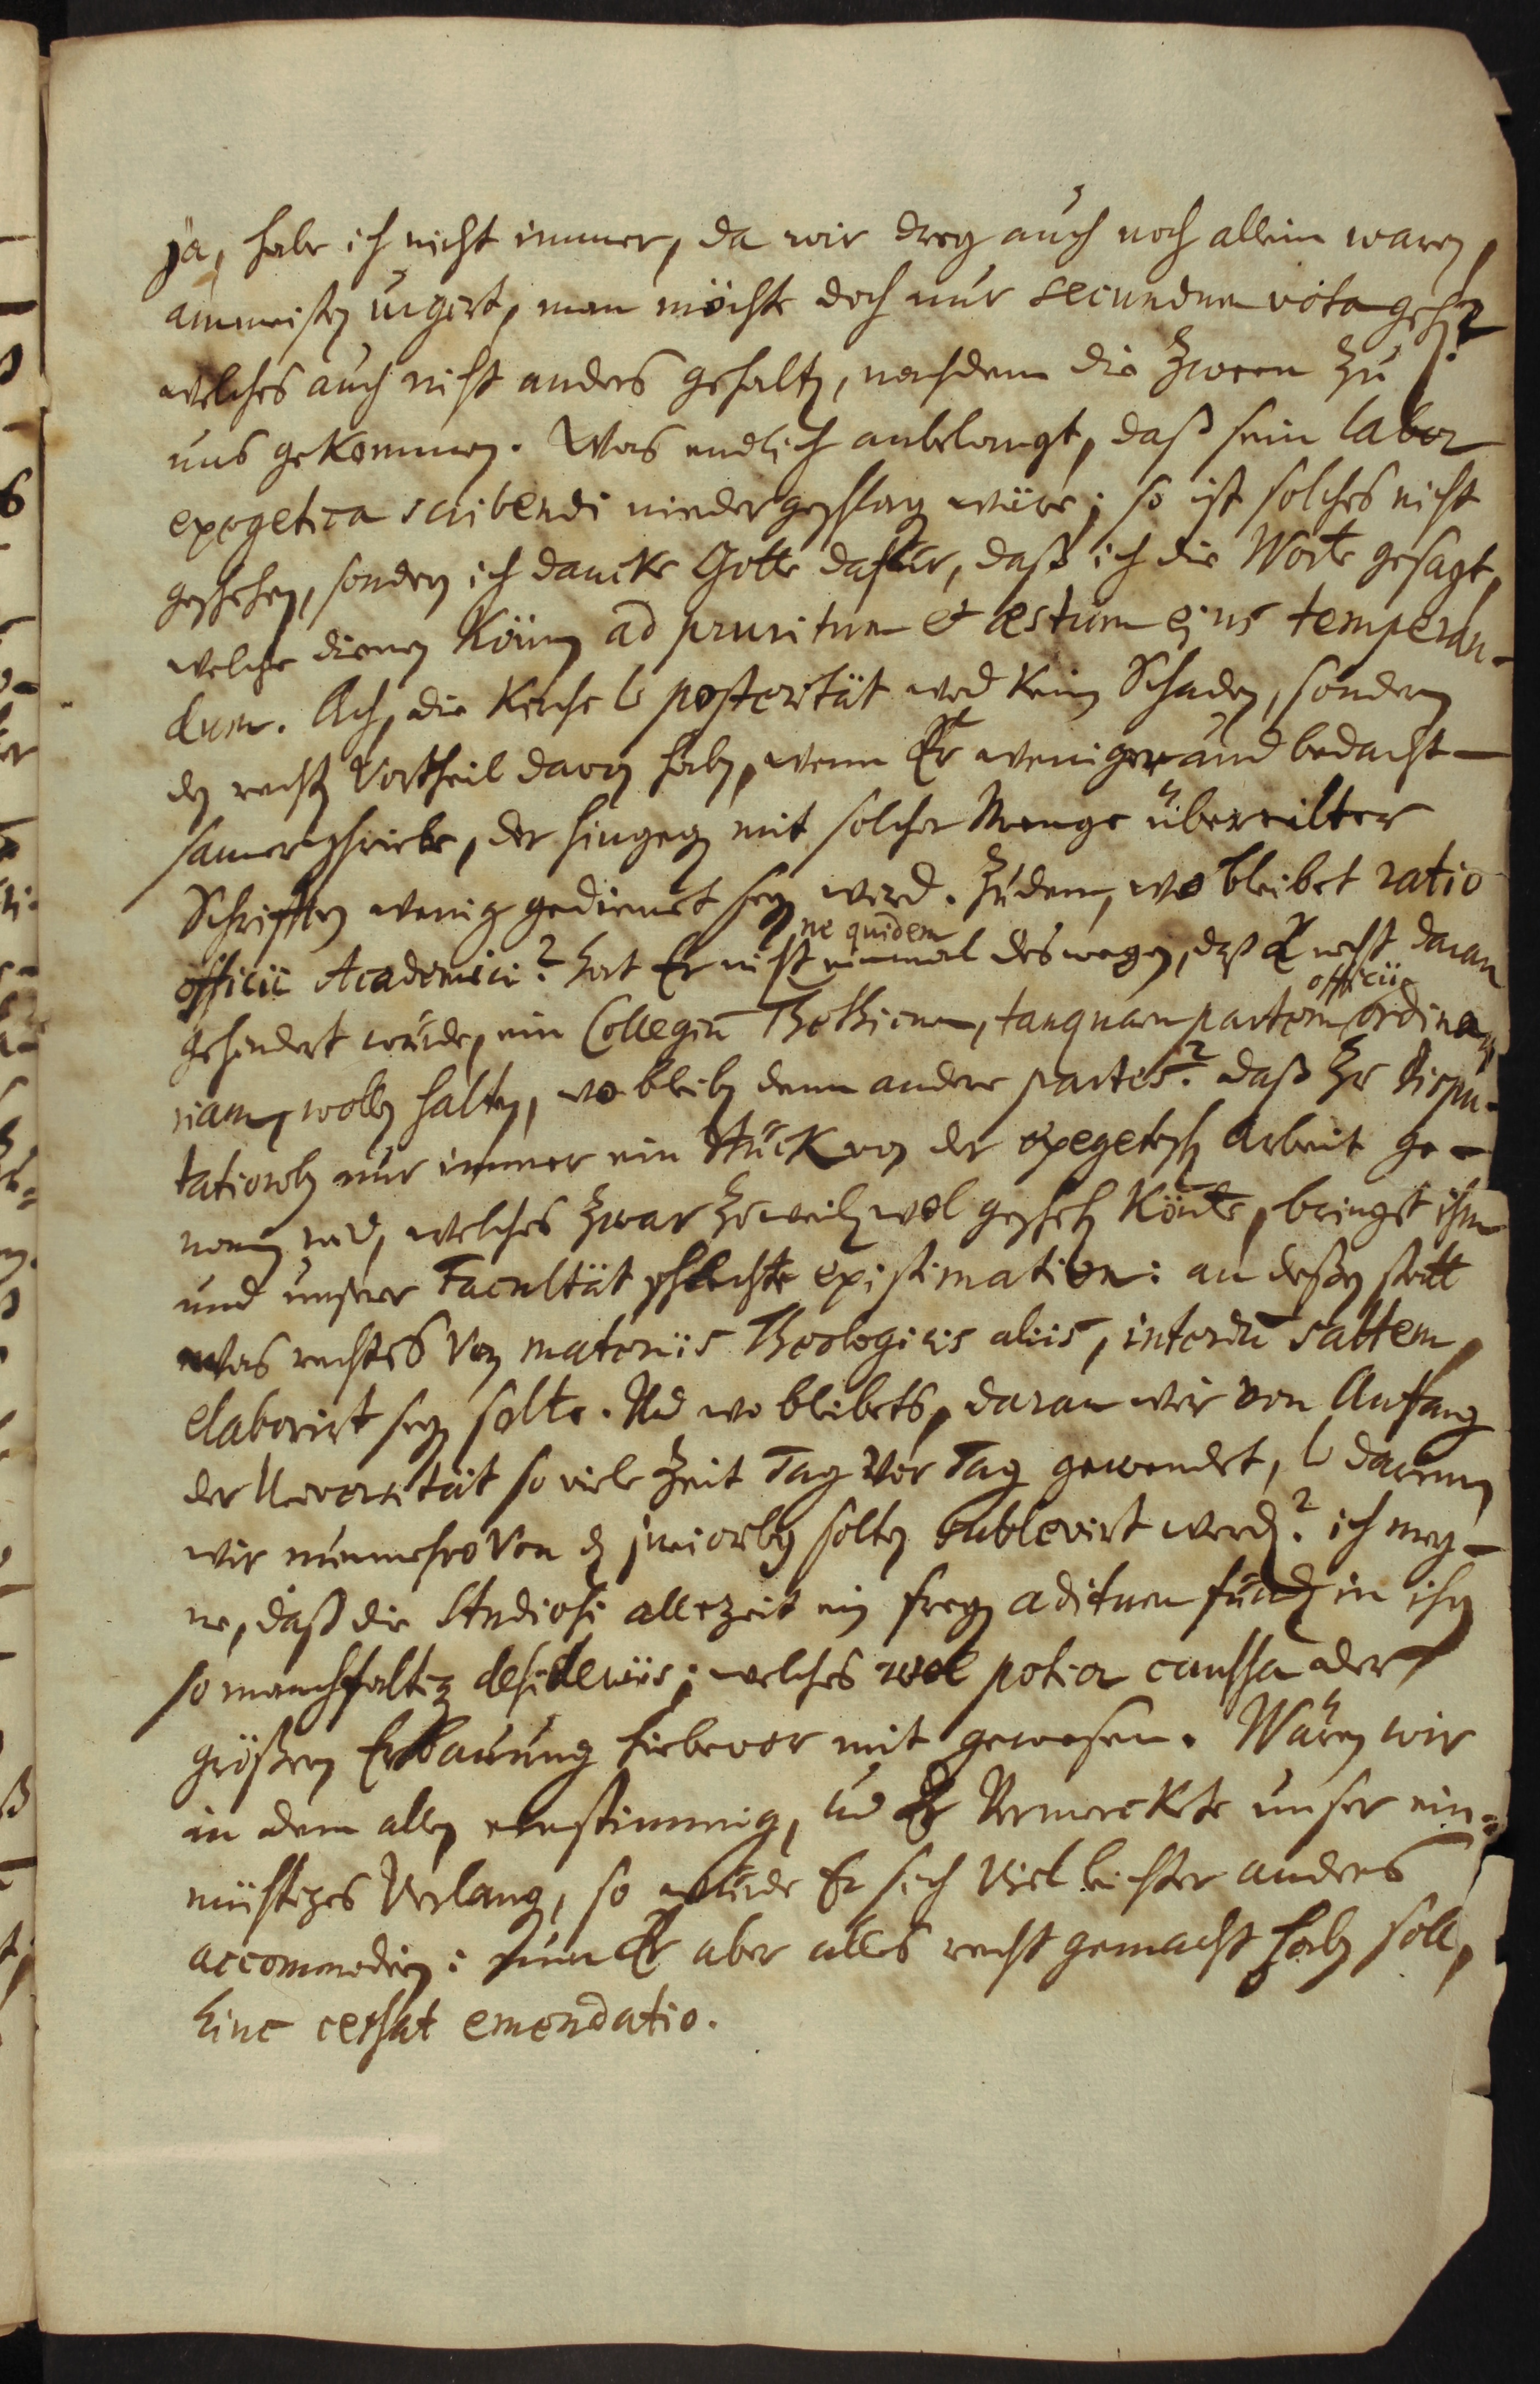 ja, habe ich nicht immer, da wir drey auch noch allein waren,
am meisten urgirt, man möchte doch nur secundum vota gehen?
welches auch nicht anders gehalten, nachdem die Zween zu
uns gekommen. Was endlich anbelangt, daß sein labor
exegetica scribendi niedergeschlagen wäre; so ist solches nicht
geschehen, sondern ich dancke Gotte dafür, daß ich die Worte gesagt,
welche dienen können ad pruritum et æstum ejus temperan-
dum. Ach, die Kirche u. posterität wird keinen Schaden, sondern
den rechten Vortheil davon haben, wenn Er weniger und bedacht-
samer schriebe, der hingegen mit solcher Menge übereilter
Schrifften wenig gedienet seyn wird. Zudem, wo bleibet ratio
officii Academici? hat Er nicht einmal ne quidem deswegen, daß Er nicht daran
gehindert würde, ein Collegiū Theticum, tanquam partem officii ordina-
riam, wollen halten, wo bleiben denn andere partes? daß Zur dispu-
tation nur immer ein Stück von der exegetischen Arbeit ge-
nommen wird, welches zwar zuweilen wol geschehen könte, bringet ihm
und unserer Facultät schlechte existimation: an deßen statt
was rechtes von materiis Theologicis aliis, interdū saltem,
elaborirt seyn solte. Und wo bleibets, daran wir von Anfang
der Universität so viele Zeit Tag vor Tag gewendet, u. darinnen
wir nunmehro von den junioribus solten sublevirt werden? ich mey-
ne, daß die Studiosi allezeit einen freyen aditum fünden in ihren
so manchfaltigen desideriis; welches wol potior caussa der
größern Erbauung hiebevor mit gewesen. Wären wir
in dem allen einstimmig, und Er vermerckte unser ein-
müthiges Verlangen, so würde Er sich viel leichter anders
accommodiren: nun Er aber alles recht gemacht haben soll,
hinc cessat emendatio.